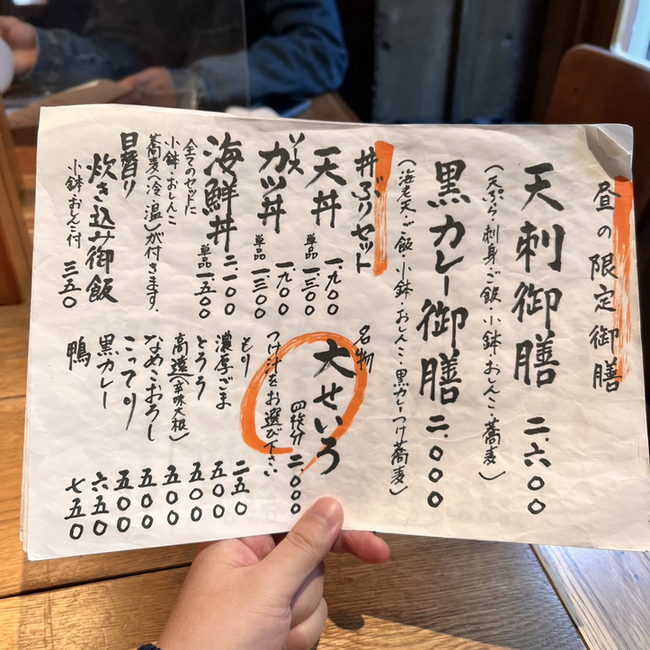 昼の限定御膳
天刺御膳 二、六〇〇
(天ぷら・刺身・ご飯・小鉢・おしんこ・蕎麦)
黒カレー御膳 二、〇〇〇
(海老天・ご飯・小鉢・おしんこ・黒カレーつけ蕎麦)
丼ぶりセット
天丼 一、九〇〇
単品 一、三〇〇
ソースカツ丼 一、九〇〇
単品 一、三〇〇
海鮮丼 二、一〇〇
単品 一、五〇〇
全てのセットに
小鉢・おしんこ
蕎麦(冷・温)が付きます。
日替り
炊き込み御飯 三五〇
小鉢おしんこ付
名物
大せいろ
四枚分 二、〇〇〇
つけ汁をお選び下さい
もり 二五〇
濃厚ごま 五〇〇
とろろ 五〇〇
高遠(辛味大根) 五〇〇
なめこおろし 五〇〇
こってり 五〇〇
黒カレー 六五〇
鴨 七五〇